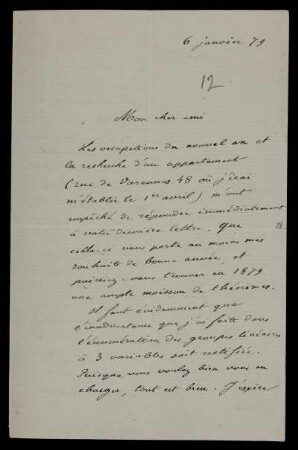 6 janvier 79
12
Mon cher ami
Les occupations du nouvel an et
la recherche d'un appartement
(rue de Varennes 48 où j'irai
m'établir le 1er avril) m'ont
empêché de répondre immédiatement
à votre dernière lettre. Que
celle-ci vous porte au moins mes
souhaits de bonne année, et
puissiez-vous trouver en 1879
une ample moisson de théorèmes.
Il faut évidemment que
l'inadvertance que j'ai faite dans
l'énumération des groupes linéaires
à 3 variables soit rectifiée.
Puisque vous voulez bien vous en
charger, tout est bien. J'espère